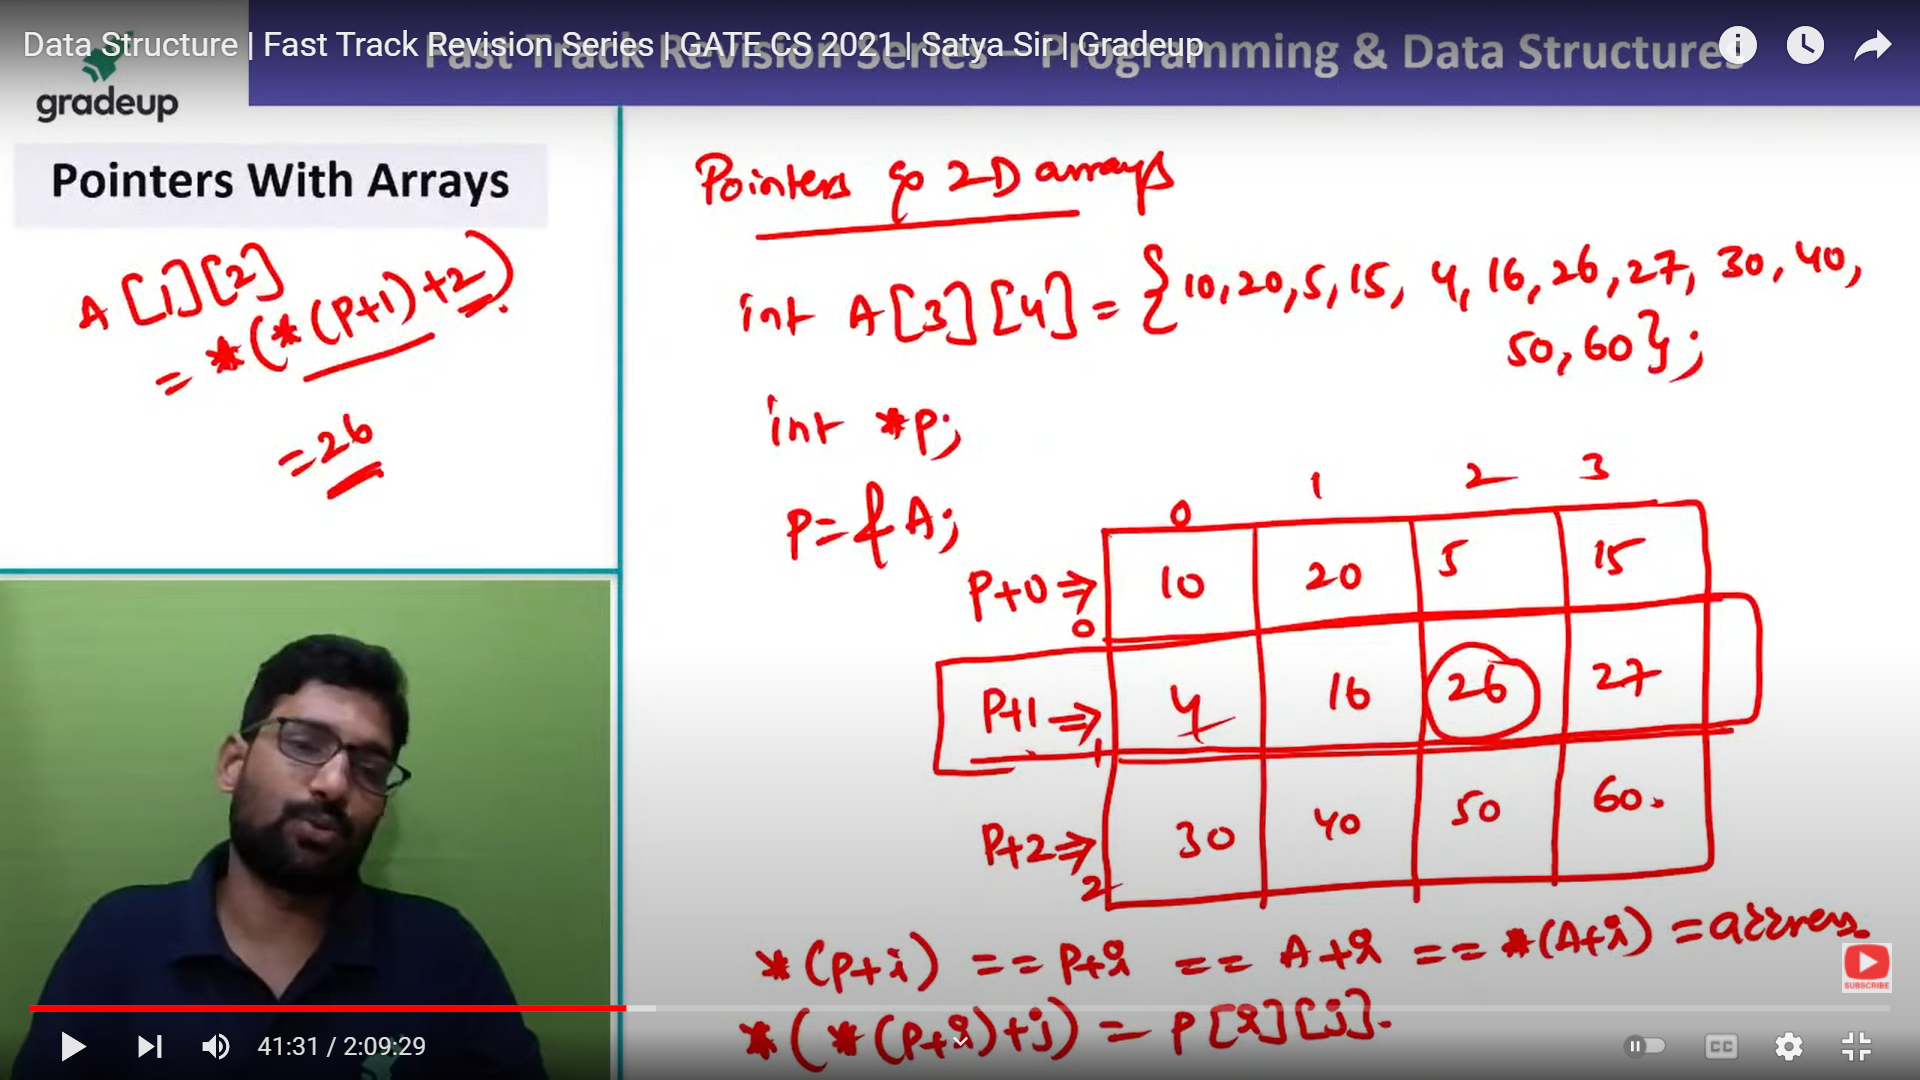 Data Structure | Fast Track Revision Series | GATE CS 2021 | Satya Sir | Gradeup
Fast Track Revision Series – Programming & Data Structures
gradeup
Pointers With Arrays
A[1][2]
= *(*(P+1)+2)
= 26
Pointers to 2D arrays
int A[3][4] = {10,20,5,15, 4,16,26,27, 30,40,
50,60};
int *P;
P=&A;
0 1 2 3
P+0 ⇒ 0 10 20 5 15
P+1 ⇒ 1 4 16 26 27
P+2 ⇒ 2 30 40 50 60
*(P+i) == P+i == A+i == *(A+i) = address
*(*(P+i)+j) = P[i][j].
SUBSCRIBE
41:31 / 2:09:29
CC